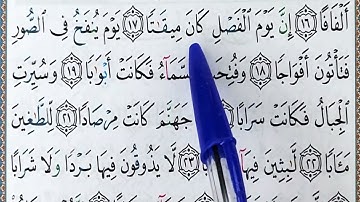 أَلْفَافًا ﴿١٦﴾ إِنَّ يَوْمَ الْفَصْلِ كَانَ مِيقَاتًا ﴿١٧﴾ يَوْمَ يُنفَخُ فِي الصُّورِ
فَتَأْتُونَ أَفْوَاجًا ﴿١٨﴾ وَفُتِحَتِ السَّمَاءُ فَكَانَتْ أَبْوَابًا ﴿١٩﴾ وَسُيِّرَتِ
الْجِبَالُ فَكَانَتْ سَرَابًا ﴿٢٠﴾ جَهَنَّمَ كَانَتْ مِرْصَادًا ﴿٢١﴾ لِّلطَّاغِينَ
مَآبًا ﴿٢٢﴾ لَّابِثِينَ فِيهَا ﴿٢٣﴾ لَّا يَذُوقُونَ فِيهَا بَرْدًا وَلَا شَرَابًا